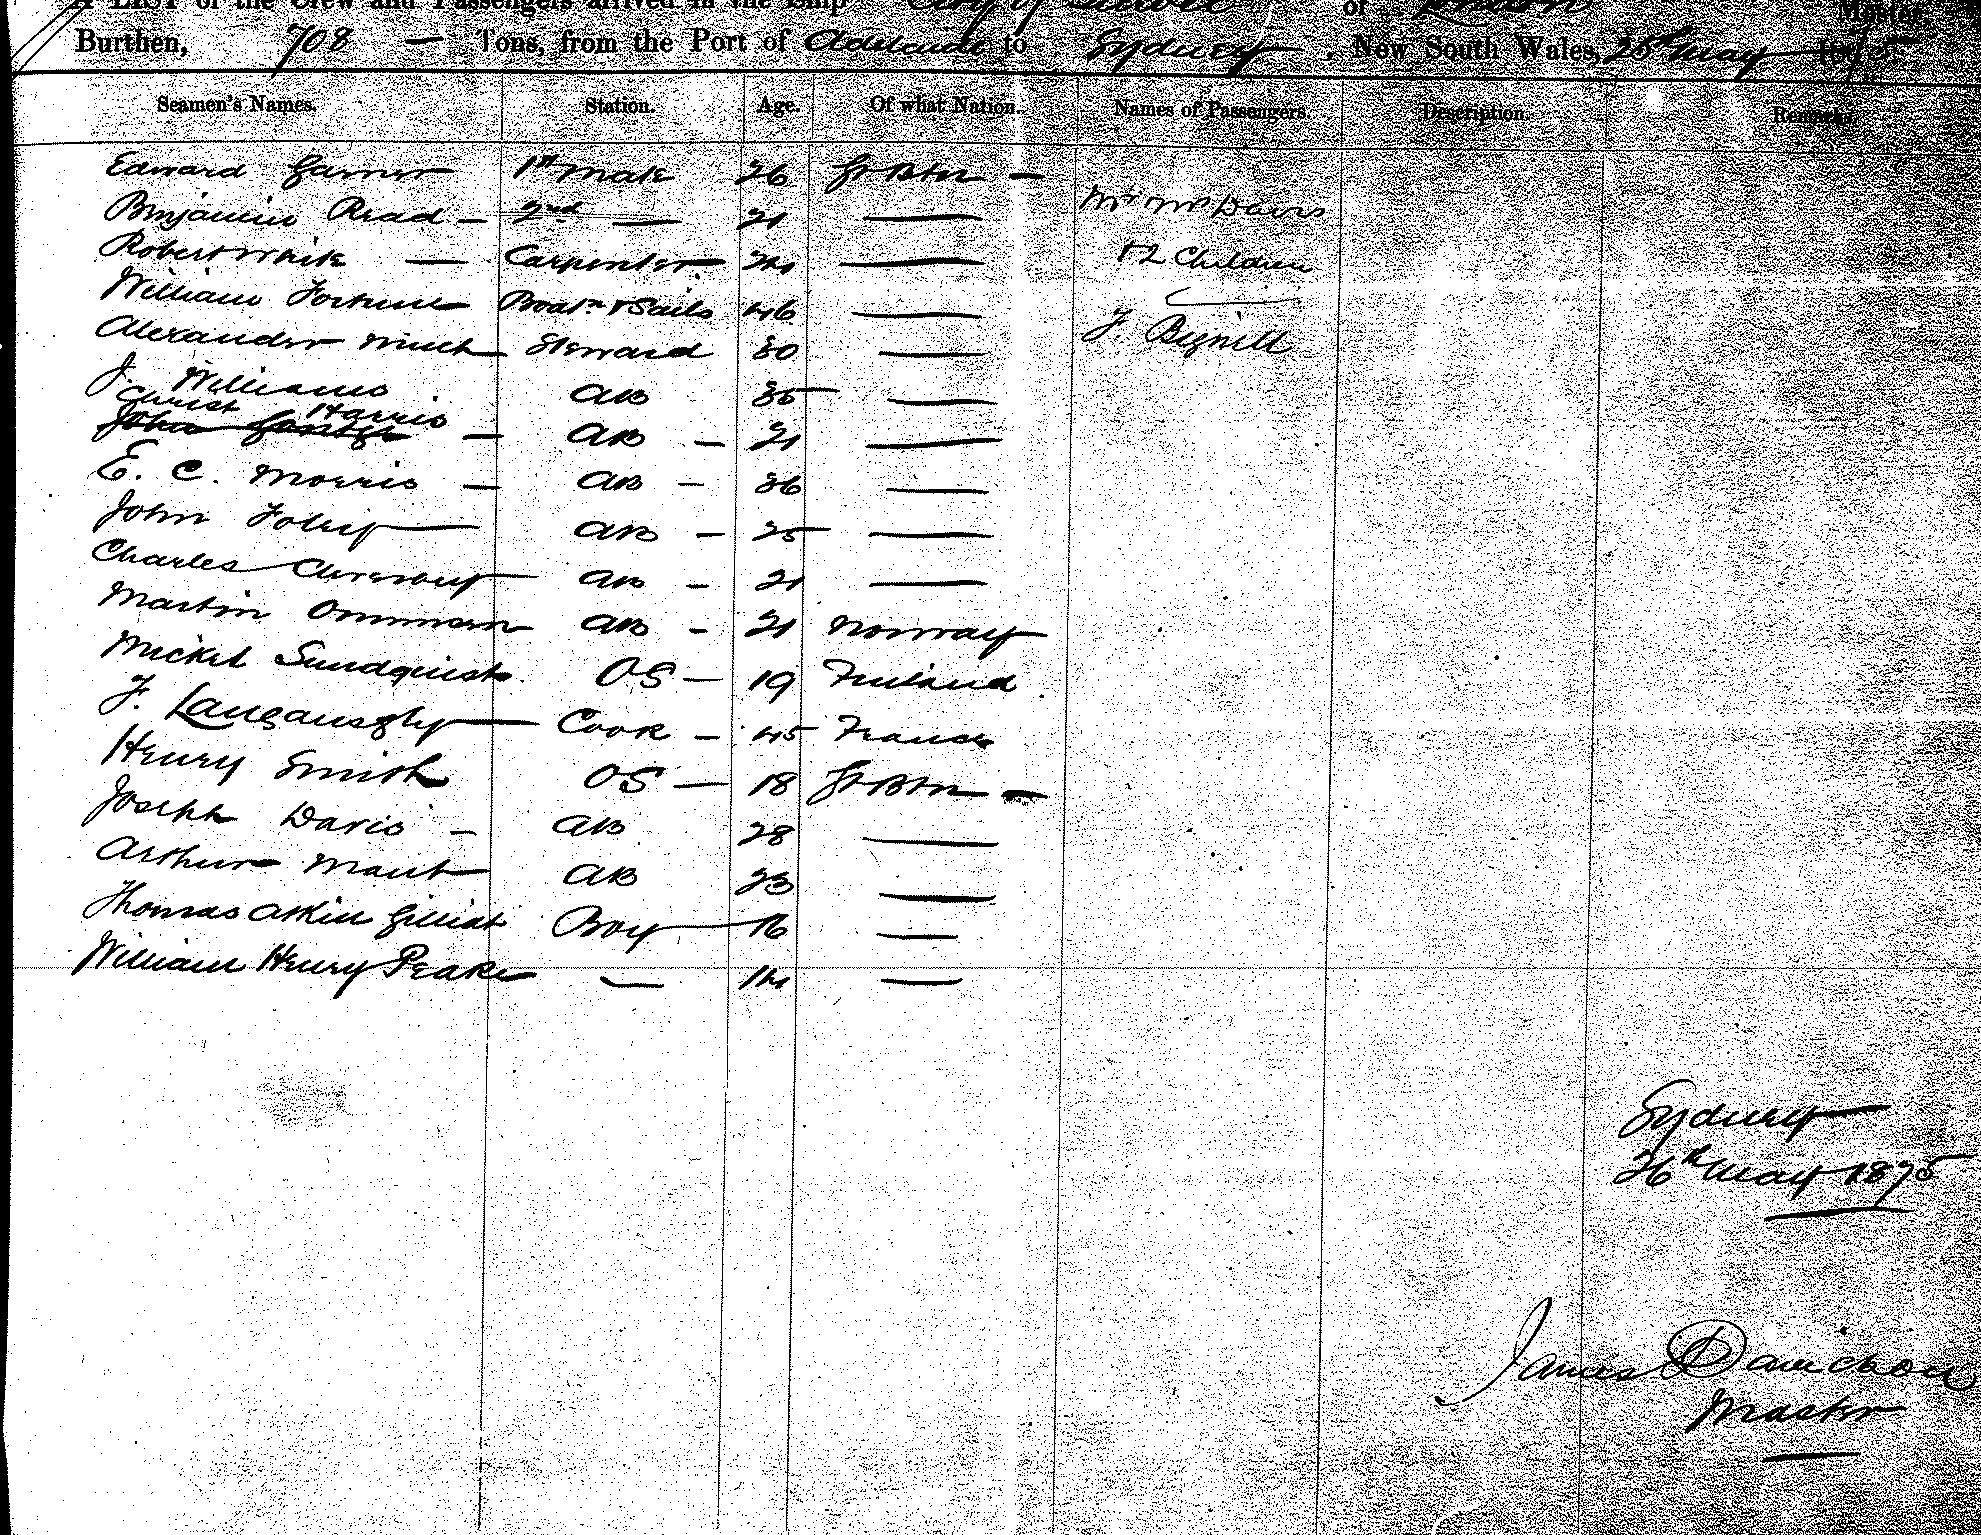 A LIST of the Crew and Passengers arrived in the Ship City of of London Master,
Burthen, 708 — Tons, from the Port of Adelaide to Sydney, New South Wales, 25th May 1875
Seamen's Names. Station. Age. Of what Nation. Names of Passengers. Description. Remarks.
Edward Garner 1st Mate 26 Gt Btn —
Benjamin Read — 2nd — 21 — Mr Mrs Davis
Robert White — Carpenter 24 — & 2 Children
William Fortune Boatn & Sails 46 —
Alexander Steward 30 — F. Bignell
J. Williams AB 35 —
Christ Harris
John — AB — 21 —
E. C. Morris — AB — 36 —
John Foley — AB — 25 —
Charles AB — 21 —
Martin Ommmsen AB — 21 Norway
Mickel Sundquist OS — 19 Finland
F. Cook — 45 France
Henry Smith OS — 18 Gt Btn —
Joseph Davis — AB 28 —
Arthur Mant AB 23 —
Thomas Atkin Gilliat Boy 16 —
William Henry Peake — 14 —
Sydney
26th May 1875
James Davidson
Master